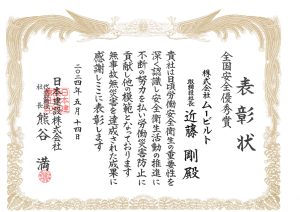 表彰状
全国安全優秀賞
株式会社 ムービルト
取締役社長 近藤 剛 殿
貴社は日頃労働安全衛生の重要性を
深く認識し安全衛生活動の推進に
不断の努力を払い労働災害防止に
貢献し他の模範となっております
無事故無災害を達成された成果に
感謝しここに表彰します
二〇二四年 五月 十四日
日本建設株式会社
代表取締役
社長 熊谷 満